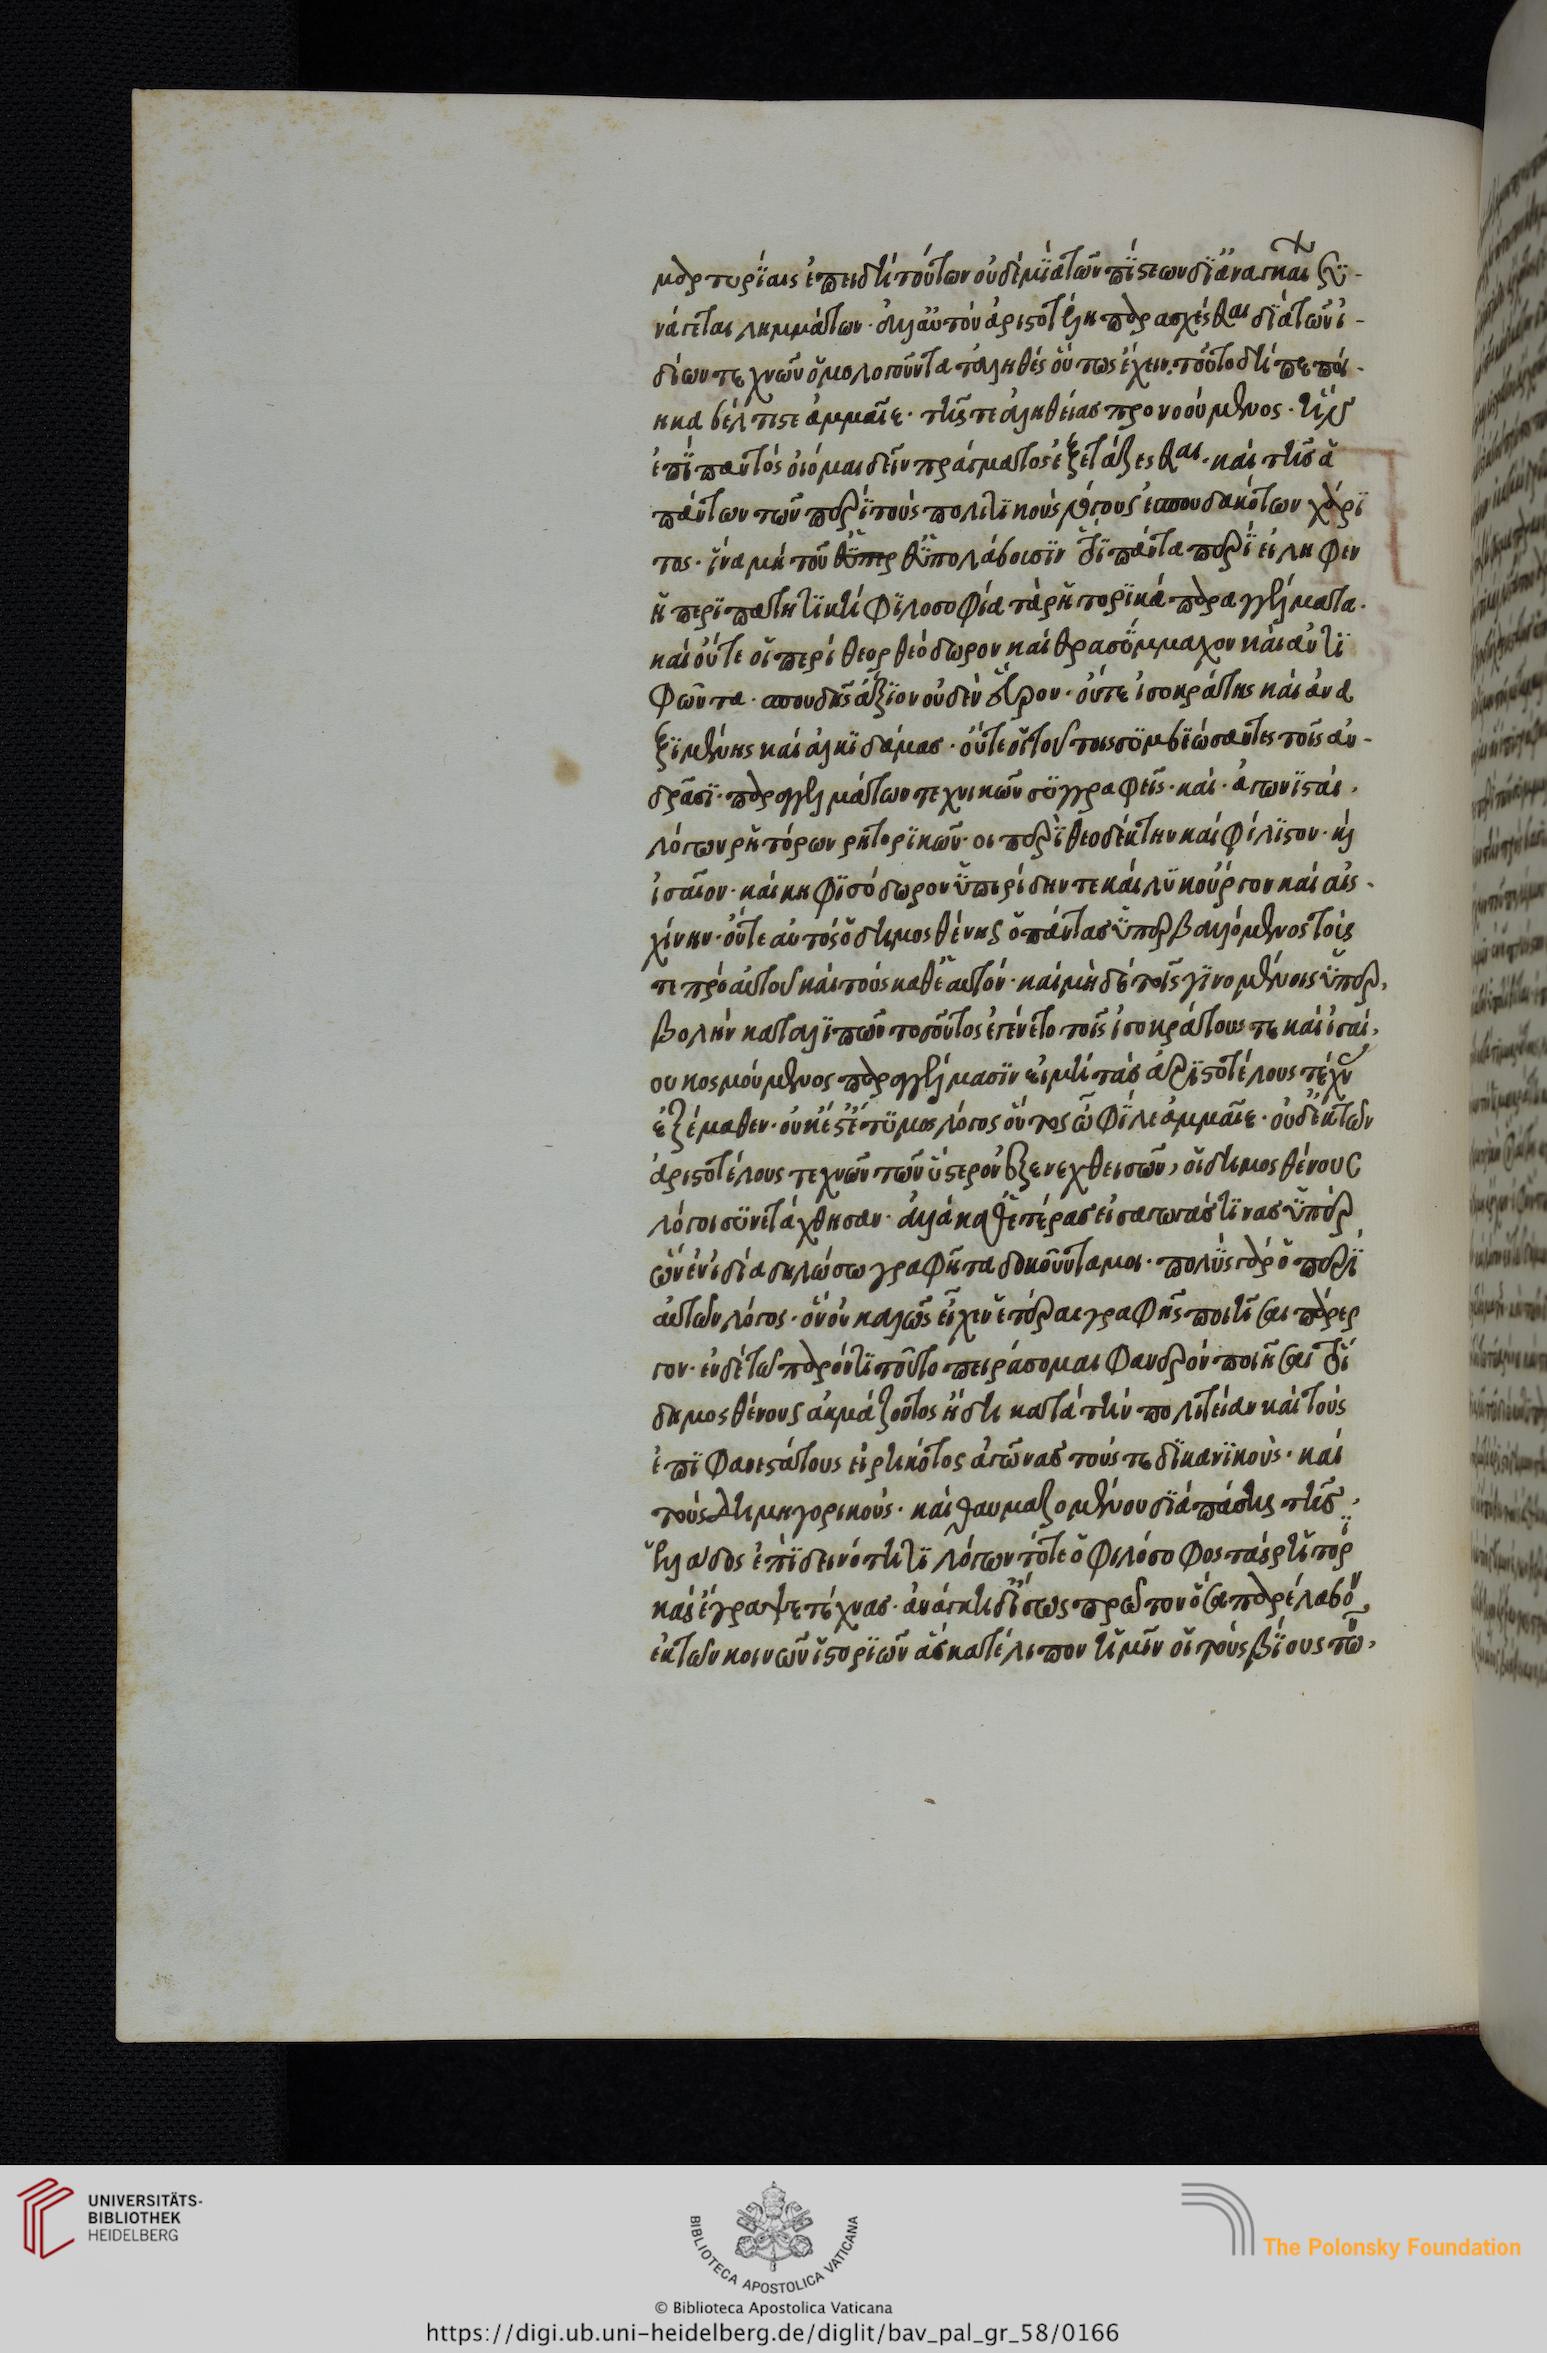 μαρτυρίαις ἐπειδὴ τούτων οὐδεμία τῶν πίστεων δι' ἀνάγκαι συ-
νάγεται λημμάτων· ἀλλ' αὐτὸν ἀριστοτέλη παρασχέσθαι διὰ τῶν ἰ-
δίων τεχνῶν ὁμολογοῦντα τἀληθὲς οὕτως ἔχειν. τοῦτο δὴ πεποί-
ηκα βέλτιστε ἀμμαῖε· τῆς τε ἀληθείας προνοούμενος· ἣν
ἐπὶ παντὸς οἴομαι δεῖν πράγματος ἐξετάζεσθαι· καὶ τῆς ἁ
πάντων τῶν περὶ τοὺς πολιτικοὺς λόγους ἐσπουδακότων χάρι
τος· ἵνα μὴ τοῦθ' ὑπερ θ' ὑπολάβωσιν ὅτι πάντα περιείληφεν
ἡ περιπατητικὴ φιλοσοφία τὰ ῥητορικὰ παραγγέλματα·
καὶ οὔτε οἱ περὶ θεορ θεόδωρον καὶ θρασύμμαχον καὶ ἀντι
φῶντα· σπουδῆς ἄξιον οὐδὲν εὗρον· οὔτε ἰσοκράτης καὶ ἀνα
ξιμένης καὶ ἀλκιδάμας· οὔτε οἱ τούτοις συμβιώσαντες τοῖς ἀν-
δράσι· παραγγελμάτων τεχνικῶν συγγραφεῖς· καὶ· ἀγωνισταὶ·
λόγων ῥητόρων ῥητορικῶν· οἱ περὶ θεοδέκτην καὶ φίλιστον· καὶ
ἰσαῖον· καὶ κηφισόδωρον ὑπερίδην τε καὶ λυκοῦργον καὶ αἰσ-
χίνην· οὔτε αὐτὸς ὁ δημοσθένης ὁ πάντας ὑπερβαλλόμενος τοὺς
τε πρὸ αὐτοῦ καὶ τοὺς καθ' ἑαυτόν· καὶ μηδὲ τοῖς γινομένοις ὑπερ-
βολὴν καταλιπῶν τοσοῦτος ἐγένετο τοῖς ἰσοκράτους τε καὶ ἰσαί-
ου κοσμούμενος παραγγέλμασιν εἰ μὴ τὰς ἀριστοτέλους τέχν
ἐξέμαθεν· οὐκ ἔστ' ἔτυμος λόγος οὗτος ὦ φίλε ἀμμαῖε· οὐδ' ἐκ τῶν
ἀριστοτέλους τεχνῶν τῶν ὕστερον ἐξενεχθεισῶν, οἱ δημοσθένους
λόγοι συνετάχθησαν· ἀλλὰ καθ' ἑτέρας εἰσαγωγάς τινας ὑπὲρ
ὧν ἐν ἰδίᾳ δηλώσω γραφῇ τὰ δοκοῦντα μοι· πολὺς γὰρ ὁ περὶ
αὐτῶν λόγος· ὃν οὐ καλῶς εἶχεν ἑτέρας γραφῆς ποιῆσαι πάρερ
γον· ἐν δὲ τῶ παρόντι τοῦτο πειράσομαι φανερὸν ποιῆσαι ὅτι
δημοσθένους ἀκμάζοντος ἤδη κατὰ τὴν πολιτείαν καὶ τοὺς
ἐπιφανεστάτους εἰρηκότος ἀγῶνας τούς τε δικανικούς· καὶ
τοὺς δημηγορικούς· καὶ θαυμαζομένου διὰ πάσης τῆς,
ἑλλάδος ἐπὶ δεινότητι λόγων τότε ὁ φιλόσοφος τὰς ῥητορ
κὰς ἔγραψε τέχνας· ἀνάγκη δ' ἴσως πρῶτον ὅσα παρέλαβον
ἐκ τῶν κοινῶν ἱστοριῶν ἃς κατέλιπον ἡμῖν οἱ τοὺς βίους τῶν,
UNIVERSITÄTS-
BIBLIOTHEK
HEIDELBERG
BIBLIOTECA APOSTOLICA VATICANA
The Polonsky Foundation
© Biblioteca Apostolica Vaticana
https://digi.ub.uni-heidelberg.de/diglit/bav_pal_gr_58/0166